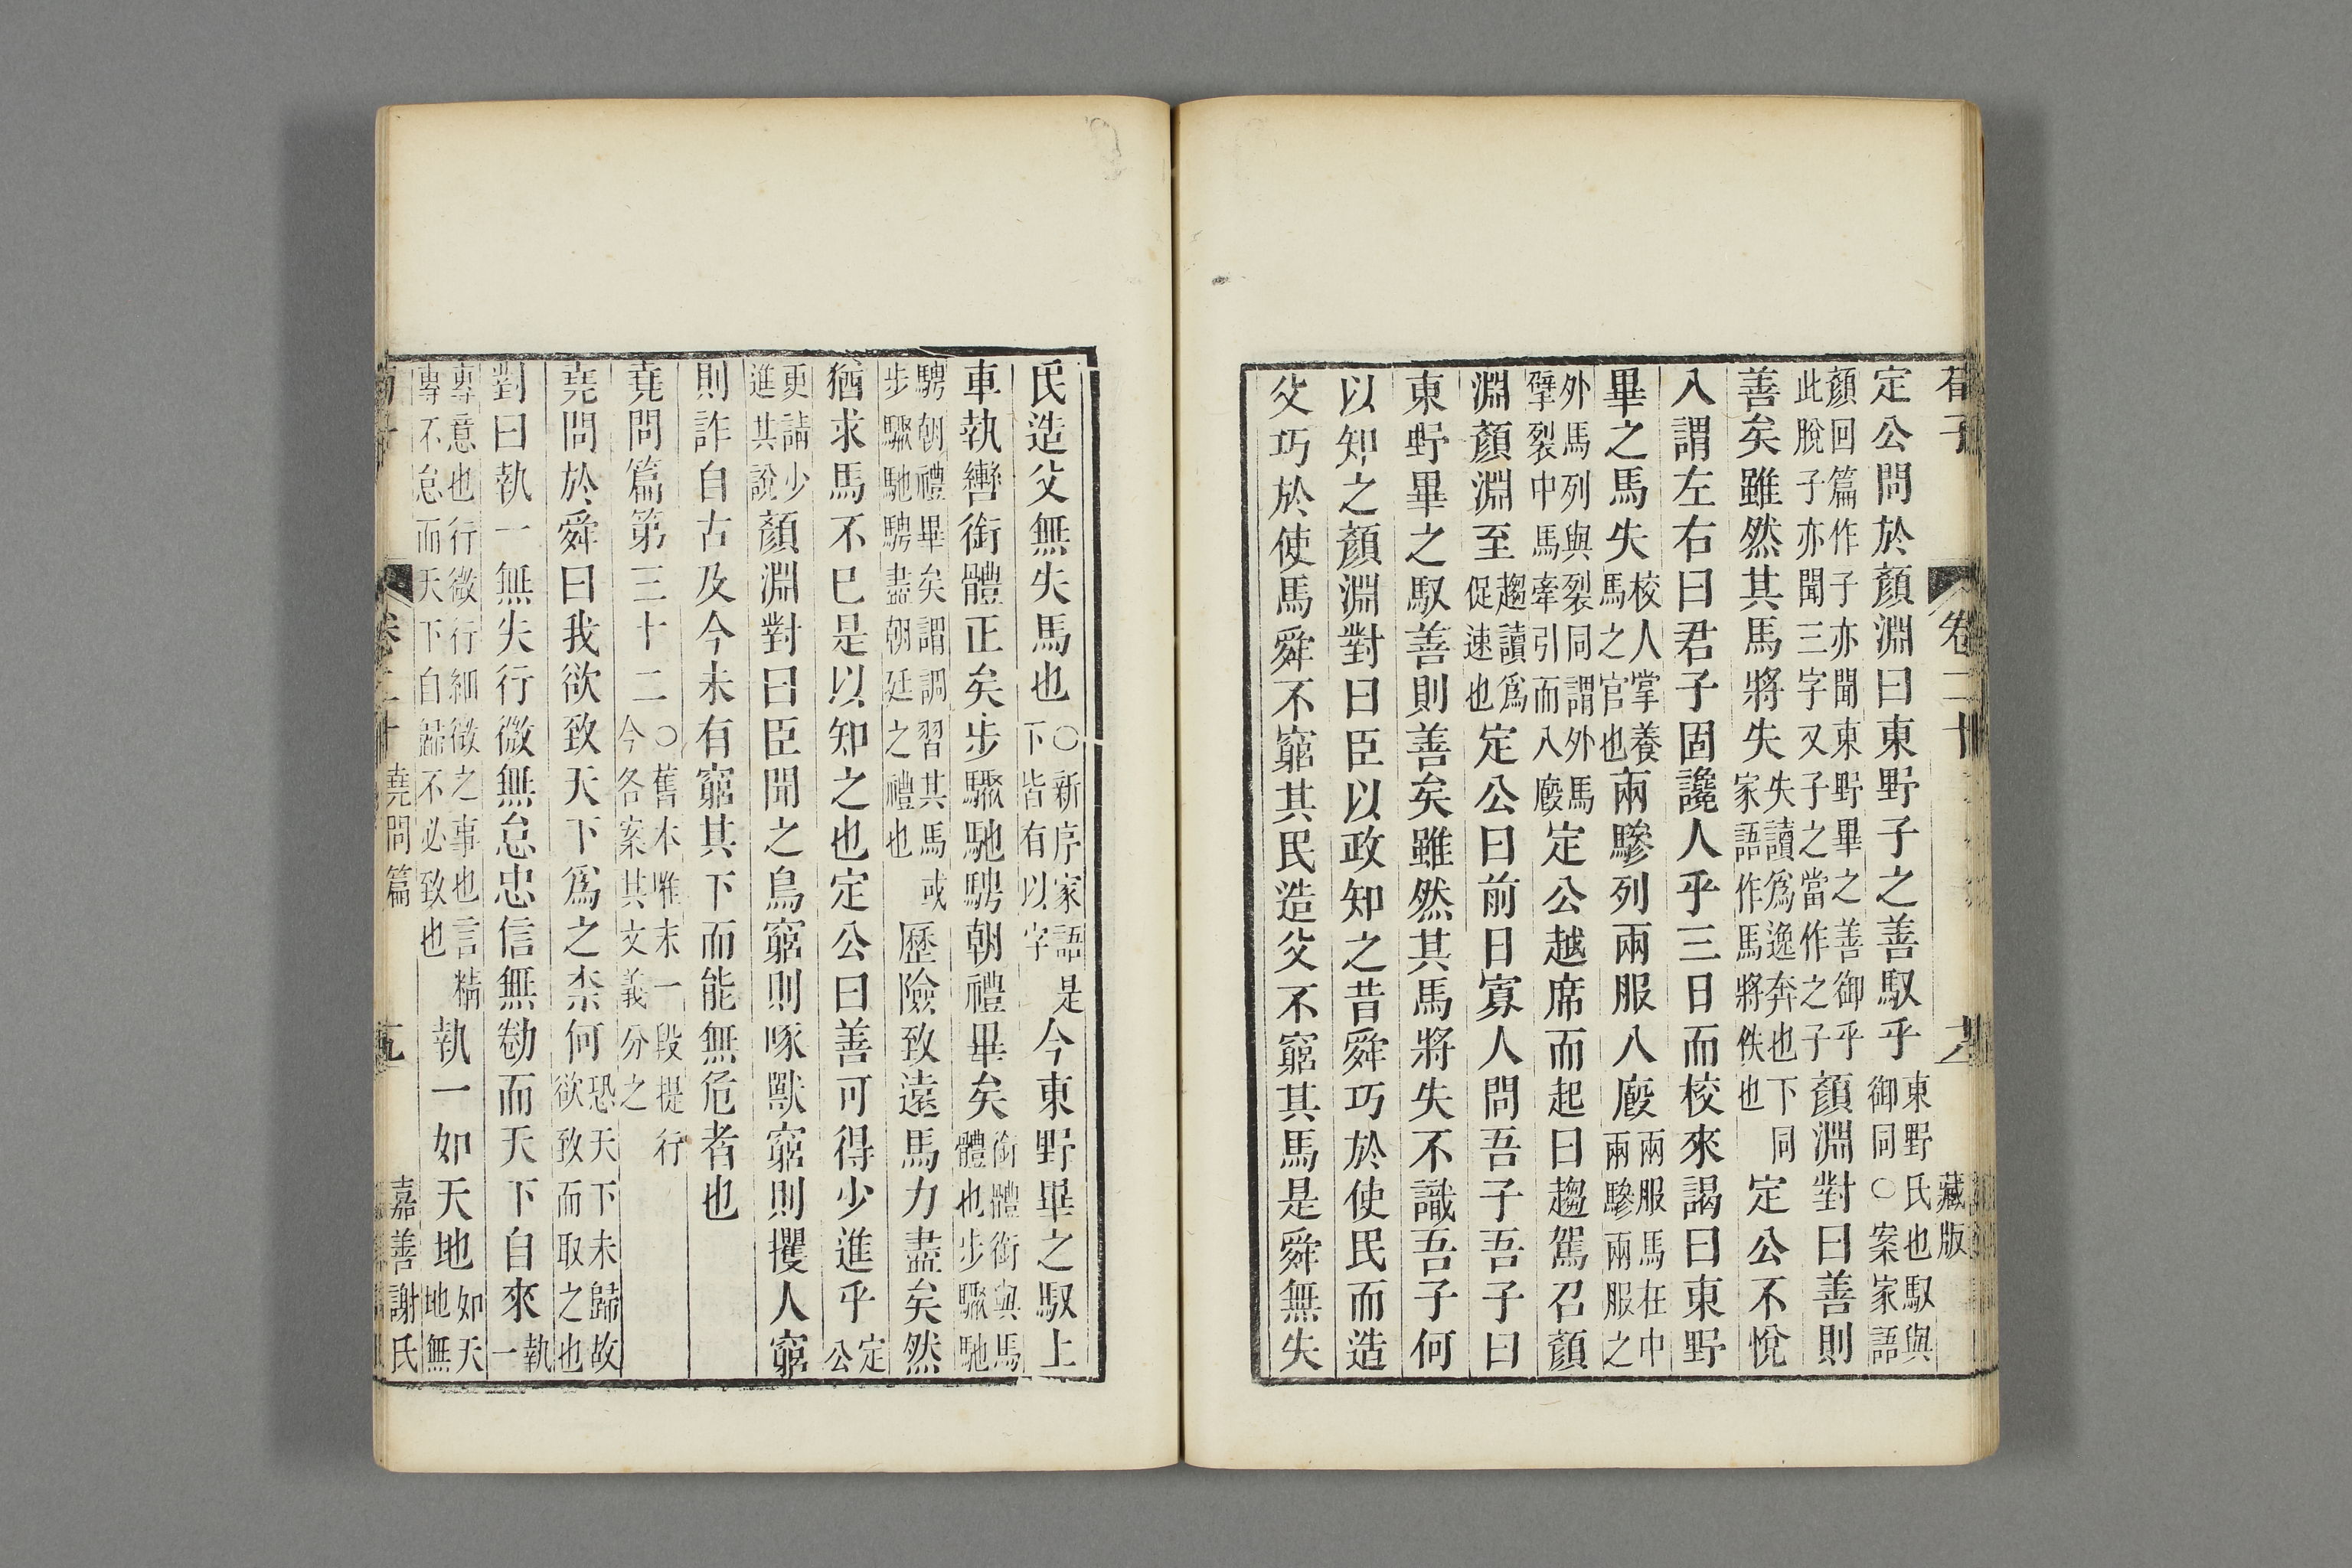 荀子 卷二十 藏版
定公問於顏淵曰東野子之善馭乎東野氏也馭與御同○案家語
顏回篇作子亦聞東野畢之善御乎此脫子亦聞三字又子之當作之子顏淵對曰善則
善矣雖然其馬將失失讀爲逸奔也下同家語作馬將佚也定公不悅
入謂左右曰君子固讒人乎三日而校來謁曰東野
畢之馬失校人掌養馬之官也兩驂列兩服入廄兩服馬在中兩驂兩服之
外馬列與裂同謂外馬擘裂中馬牽引而入廄定公越席而起曰趨駕召顏
淵顏淵至趨讀爲促速也定公曰前日寡人問吾子吾子曰
東野畢之馭善則善矣雖然其馬將失不識吾子何
以知之顏淵對曰臣以政知之昔舜巧於使民而造
父巧於使馬舜不窮其民造父不窮其馬是舜無失
民造父無失馬也○新序家語是下皆有以字今東野畢之馭上
車執轡銜體正矣步驟馳騁朝禮畢矣銜體銜與馬體也步驟馳
騁朝禮畢矣謂調習其馬或步驟馳騁盡朝廷之禮也歷險致遠馬力盡矣然
猶求馬不已是以知之也定公曰善可得少進乎定公
更請少進其說顏淵對曰臣聞之鳥窮則啄獸窮則攫人窮
則詐自古及今未有窮其下而能無危者也
堯問篇第三十二○舊本唯末一段提行今各案其文義分之
堯問於舜曰我欲致天下爲之柰何恐天下未歸故欲致而取之也
對曰執一無失行微無怠忠信無勌而天下自來執一
專意也行微行細微之事也言精專不怠而天下自歸不必致也執一如天地如天地無
卷二十 堯問篇 嘉善謝氏